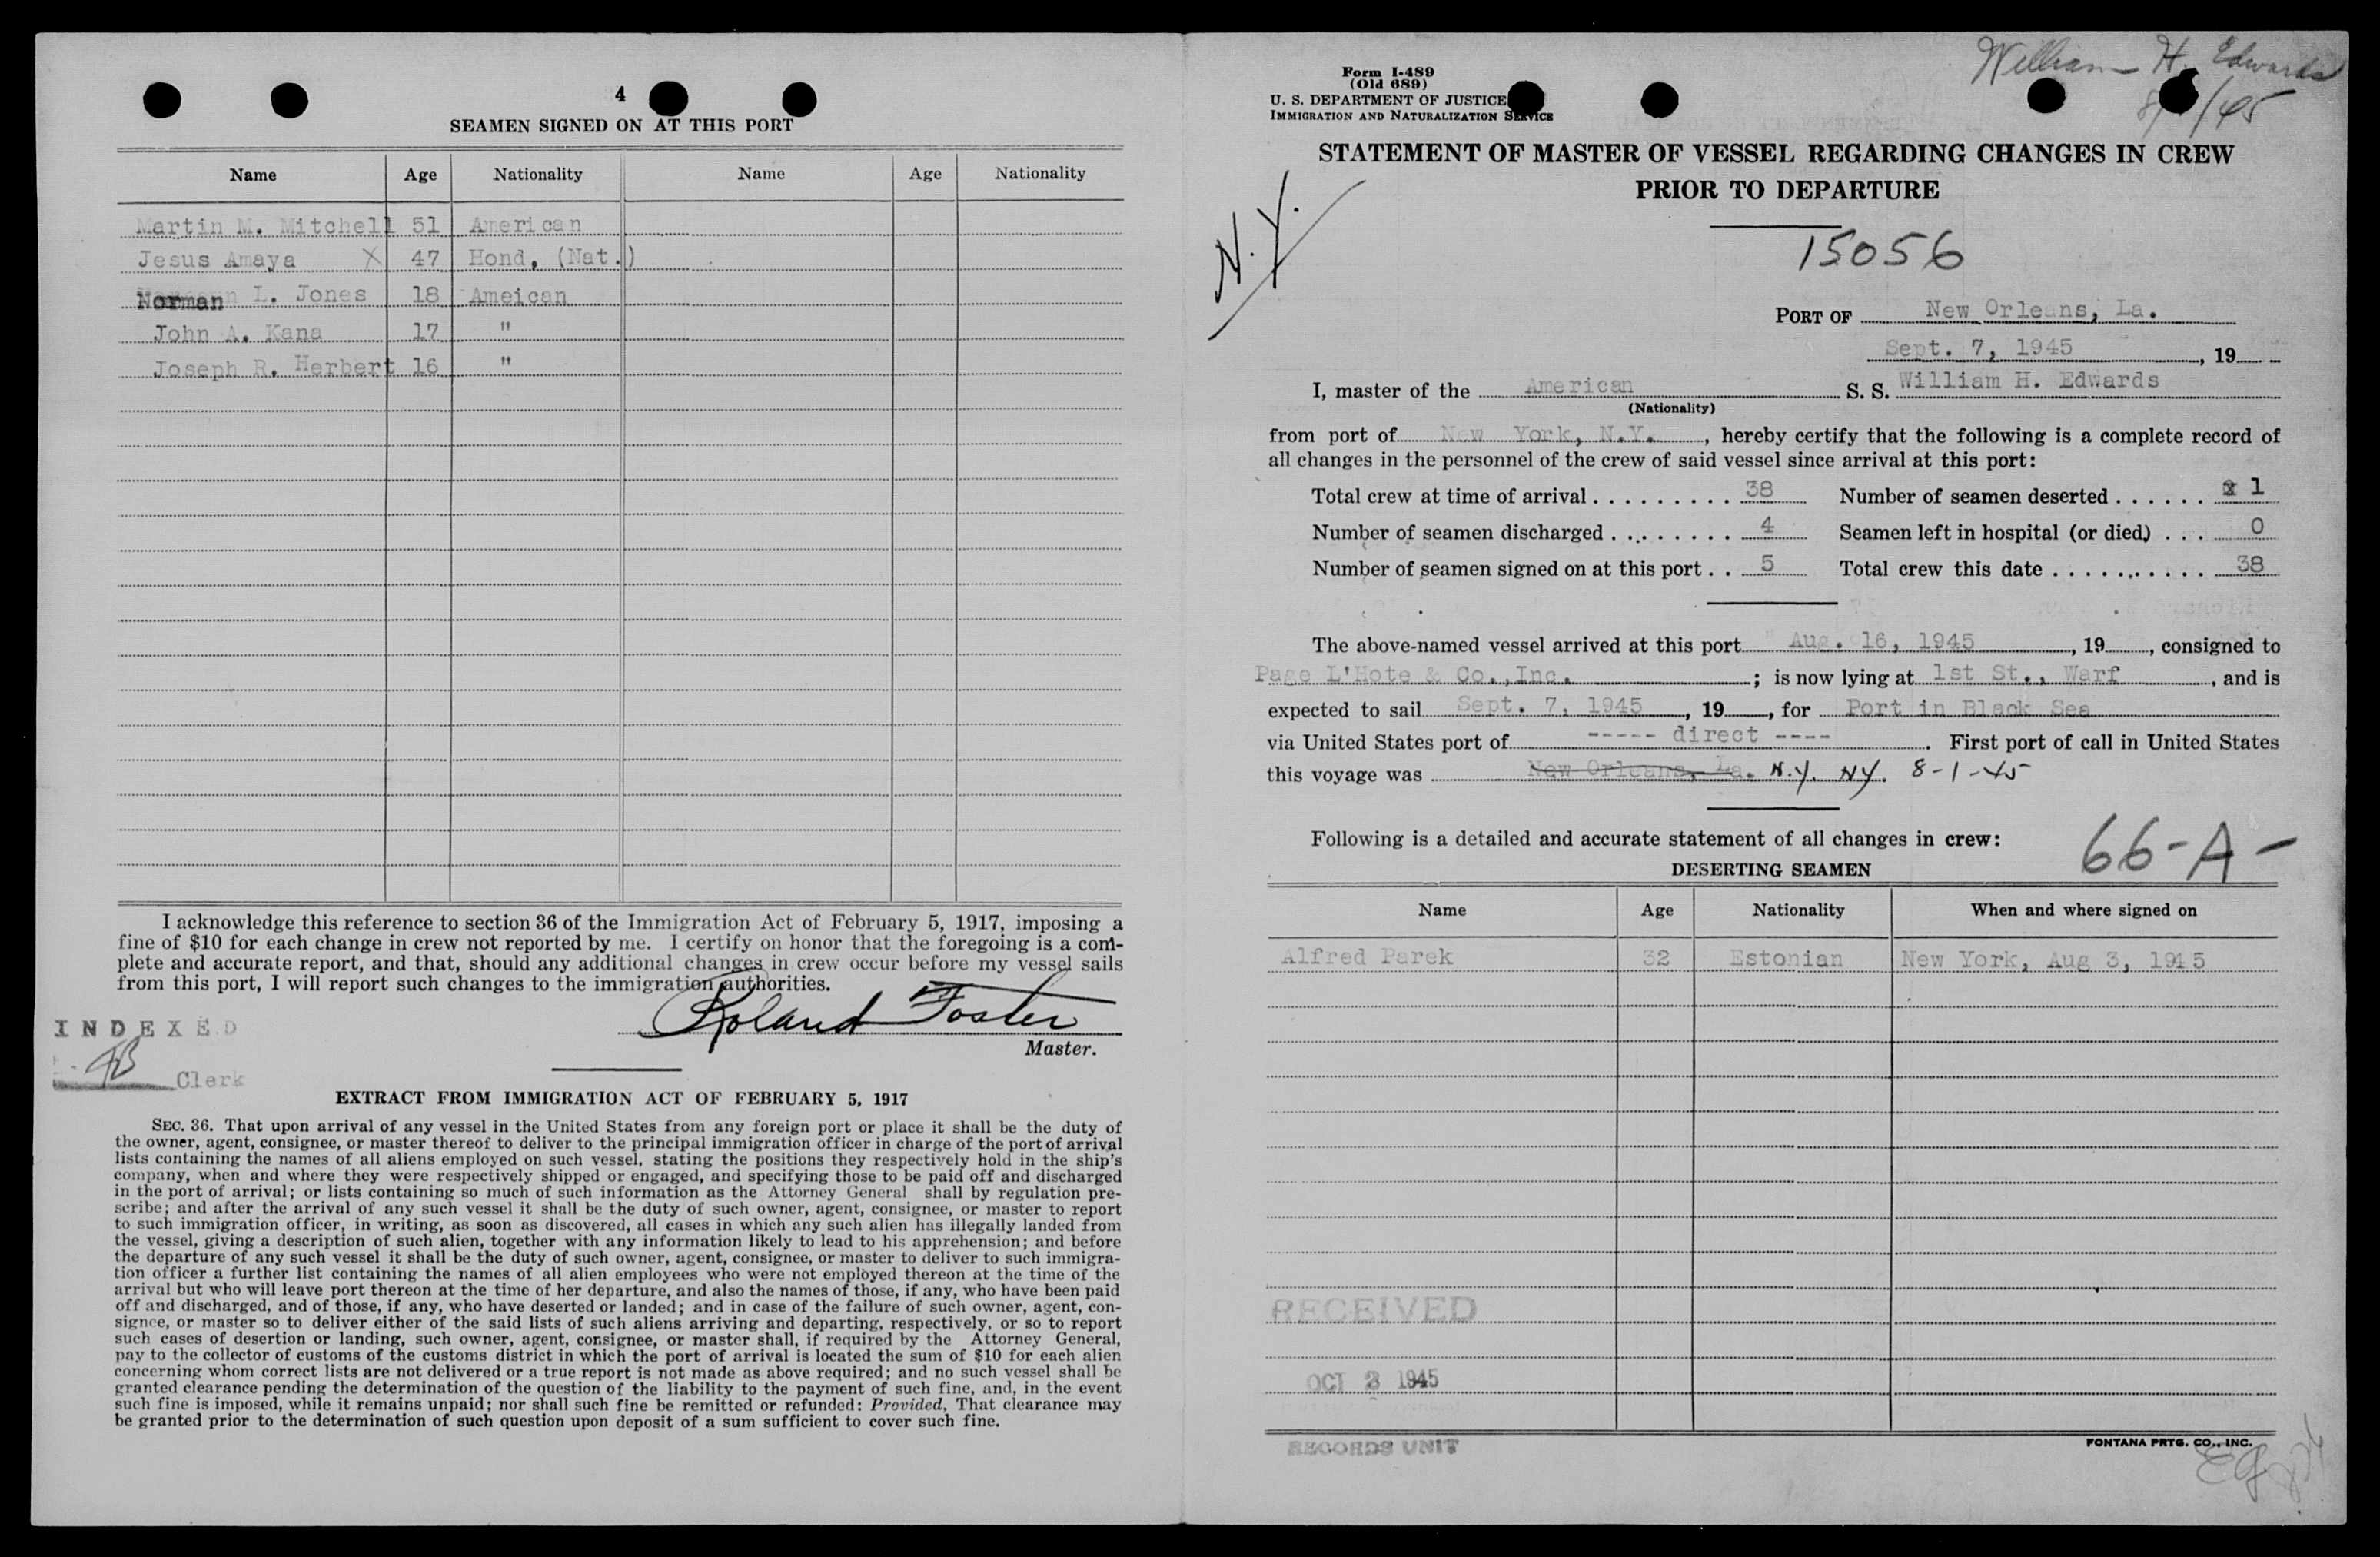 4
SEAMEN SIGNED ON AT THIS PORT
Name Age Nationality Name Age Nationality
Martin M. Mitchell 51 American
Jesus Amaya X 47 Hond, (Nat.)
Norman L. Jones 18 Ameican
John A. Kana 17 "
Joseph R. Herbert 16 "
I acknowledge this reference to section 36 of the Immigration Act of February 5, 1917, imposing a
fine of $10 for each change in crew not reported by me. I certify on honor that the foregoing is a com-
plete and accurate report, and that, should any additional changes in crew occur before my vessel sails
from this port, I will report such changes to the immigration authorities.
Roland Foster
Master.
INDEXED
Clerk
EXTRACT FROM IMMIGRATION ACT OF FEBRUARY 5, 1917
SEC. 36. That upon arrival of any vessel in the United States from any foreign port or place it shall be the duty of
the owner, agent, consignee, or master thereof to deliver to the principal immigration officer in charge of the port of arrival
lists containing the names of all aliens employed on such vessel, stating the positions they respectively hold in the ship's
company, when and where they were respectively shipped or engaged, and specifying those to be paid off and discharged
in the port of arrival; or lists containing so much of such information as the Attorney General shall by regulation pre-
scribe; and after the arrival of any such vessel it shall be the duty of such owner, agent, consignee, or master to report
to such immigration officer, in writing, as soon as discovered, all cases in which any such alien has illegally landed from
the vessel, giving a description of such alien, together with any information likely to lead to his apprehension; and before
the departure of any such vessel it shall be the duty of such owner, agent, consignee, or master to deliver to such immigra-
tion officer a further list containing the names of all alien employees who were not employed thereon at the time of the
arrival but who will leave port thereon at the time of her departure, and also the names of those, if any, who have been paid
off and discharged, and of those, if any, who have deserted or landed; and in case of the failure of such owner, agent, con-
signee, or master so to deliver either of the said lists of such aliens arriving and departing, respectively, or so to report
such cases of desertion or landing, such owner, agent, consignee, or master shall, if required by the Attorney General,
pay to the collector of customs of the customs district in which the port of arrival is located the sum of $10 for each alien
concerning whom correct lists are not delivered or a true report is not made as above required; and no such vessel shall be
granted clearance pending the determination of the question of the liability to the payment of such fine, and, in the event
such fine is imposed, while it remains unpaid; nor shall such fine be remitted or refunded: Provided, That clearance may
be granted prior to the determination of such question upon deposit of a sum sufficient to cover such fine.
William H. Edwards
Form I-489
(Old 689)
U. S. DEPARTMENT OF JUSTICE
IMMIGRATION AND NATURALIZATION SERVICE
STATEMENT OF MASTER OF VESSEL REGARDING CHANGES IN CREW
PRIOR TO DEPARTURE
N.Y.
15056
PORT OF New Orleans, La.
Sept. 7, 1945, 19
I, master of the American S. S. William H. Edwards
(Nationality)
from port of New York, N.Y., hereby certify that the following is a complete record of
all changes in the personnel of the crew of said vessel since arrival at this port:
Total crew at time of arrival 38 Number of seamen deserted 1
Number of seamen discharged 4 Seamen left in hospital (or died) 0
Number of seamen signed on at this port 5 Total crew this date 38
The above-named vessel arrived at this port Aug. 16, 1945, 19, consigned to
Page L'Hote & Co., Inc.; is now lying at 1st St., Warf, and is
expected to sail Sept. 7, 1945, 19, for Port in Black Sea
via United States port of ----- direct ----. First port of call in United States
this voyage was New Orleans, La. N.Y. NY. 8-1-45
Following is a detailed and accurate statement of all changes in crew:
66-A-
DESERTING SEAMEN
Name Age Nationality When and where signed on
Alfred Parek 32 Estonian New York, Aug 3, 1945
RECEIVED
OCT 2 1945
RECORDS UNIT
FONTANA PRTG. CO., INC.